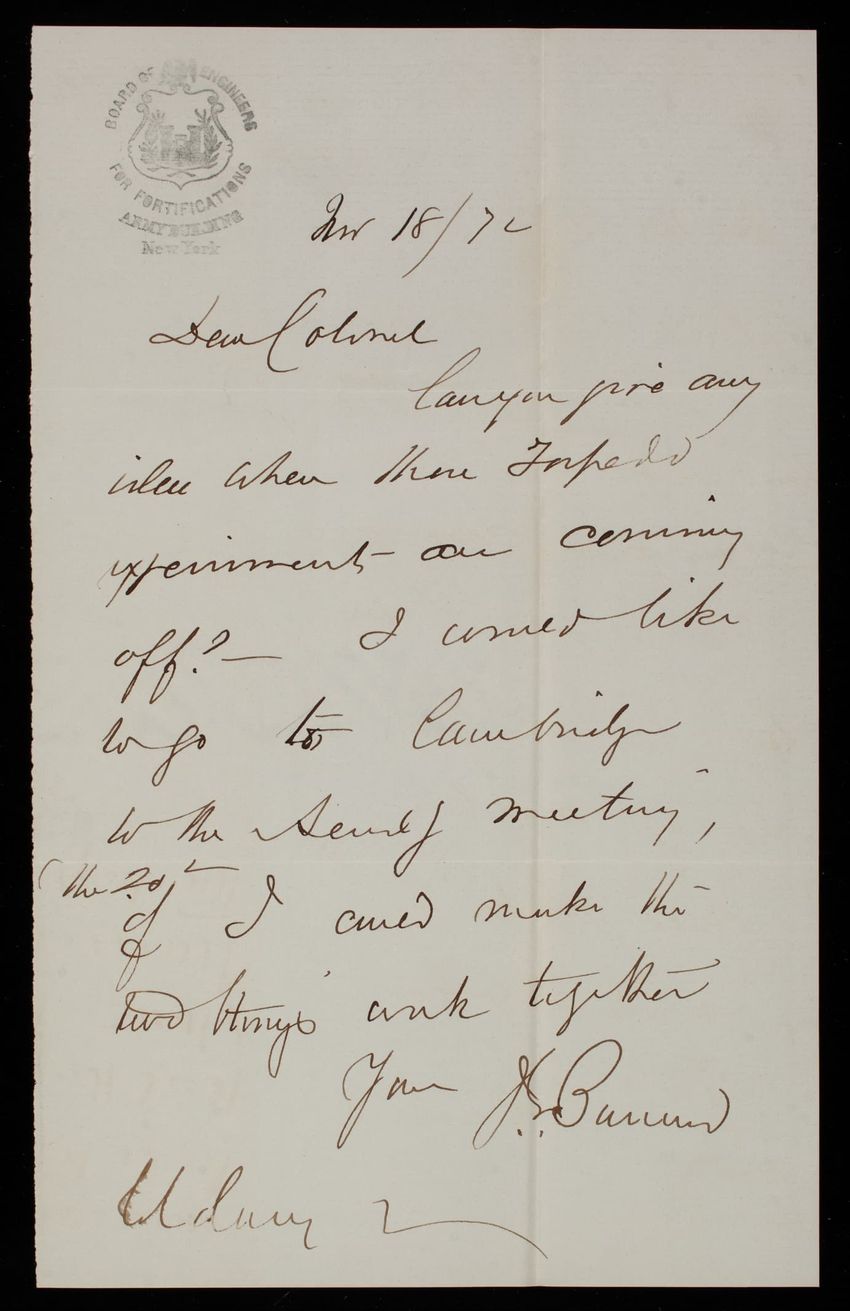 BOARD OF ENGINEERS
FOR FORTIFICATIONS
ARMY BUILDING
New York
Nov 18/72
Dear Colonel
Can you give any
idea when those Torpedo
experiments are coming
off? — I would like
to go to Cambridge
to the Acady meeting,
(the 20th
if I could make the
two things work together
Yours J. G. Barnard
Col Casey